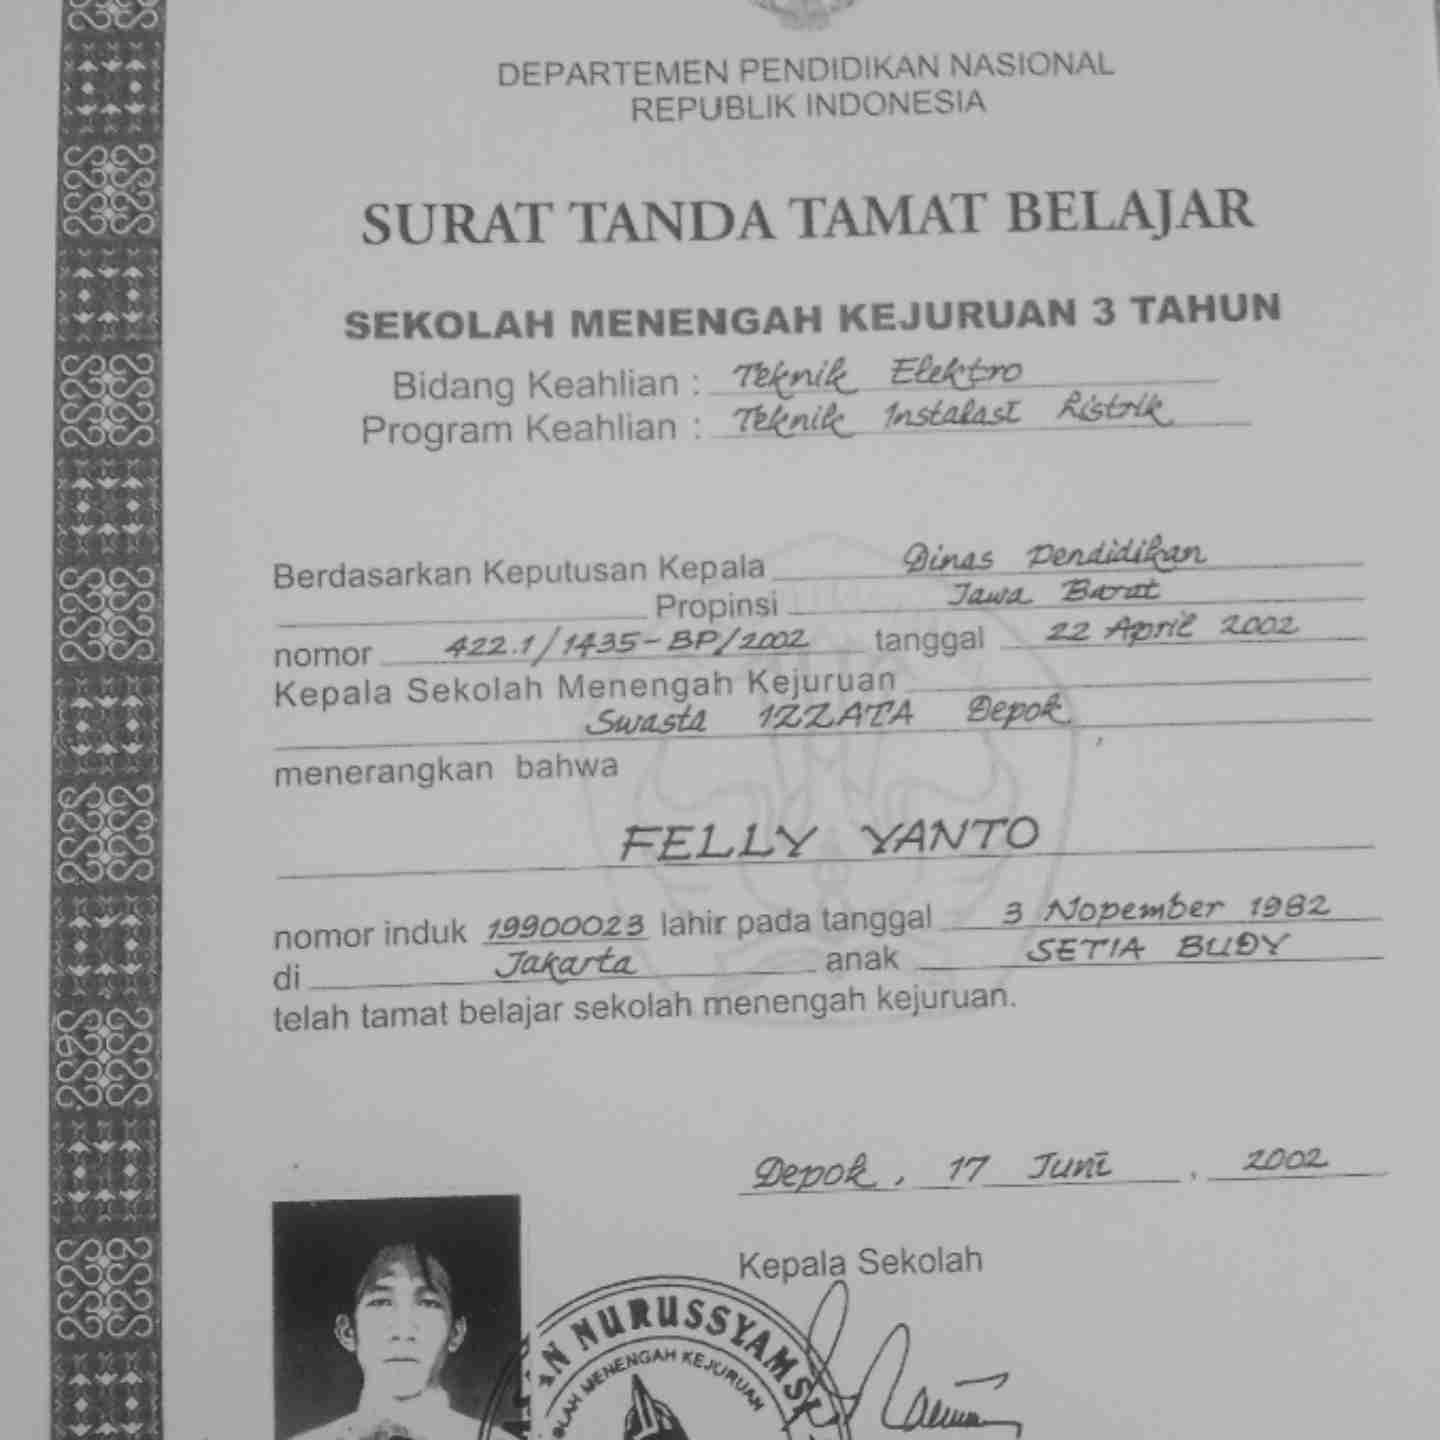 DEPARTEMEN PENDIDIKAN NASIONAL
REPUBLIK INDONESIA
SURAT TANDA TAMAT BELAJAR
SEKOLAH MENENGAH KEJURUAN 3 TAHUN
Bidang Keahlian : Teknik Elektro
Program Keahlian : Teknik Instalasi Listrik
Berdasarkan Keputusan Kepala Dinas Pendidikan
Propinsi Jawa Barat
nomor 422.1/1435-BP/2002 tanggal 22 April 2002
Kepala Sekolah Menengah Kejuruan
Swasta IZZATA Depok
menerangkan bahwa
FELLY YANTO
nomor induk 19900023 lahir pada tanggal 3 Nopember 1982
di Jakarta anak SETIA BUDY
telah tamat belajar sekolah menengah kejuruan.
Depok, 17 Juni, 2002
Kepala Sekolah
NURUSSYAMS
MENENGAH KEJURUAN